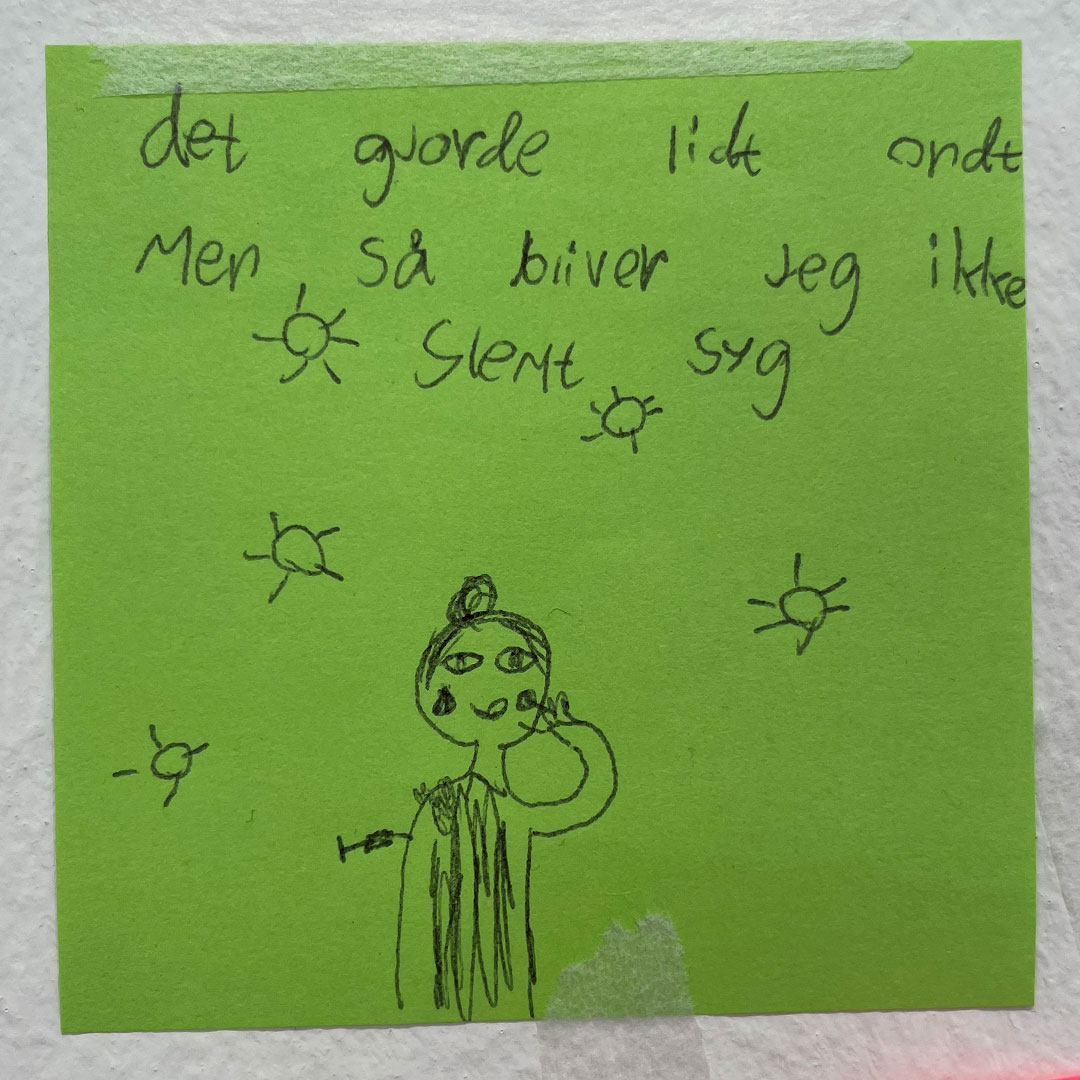 det gjorde lidt ondt
Men så bliver jeg ikke
Slemt syg